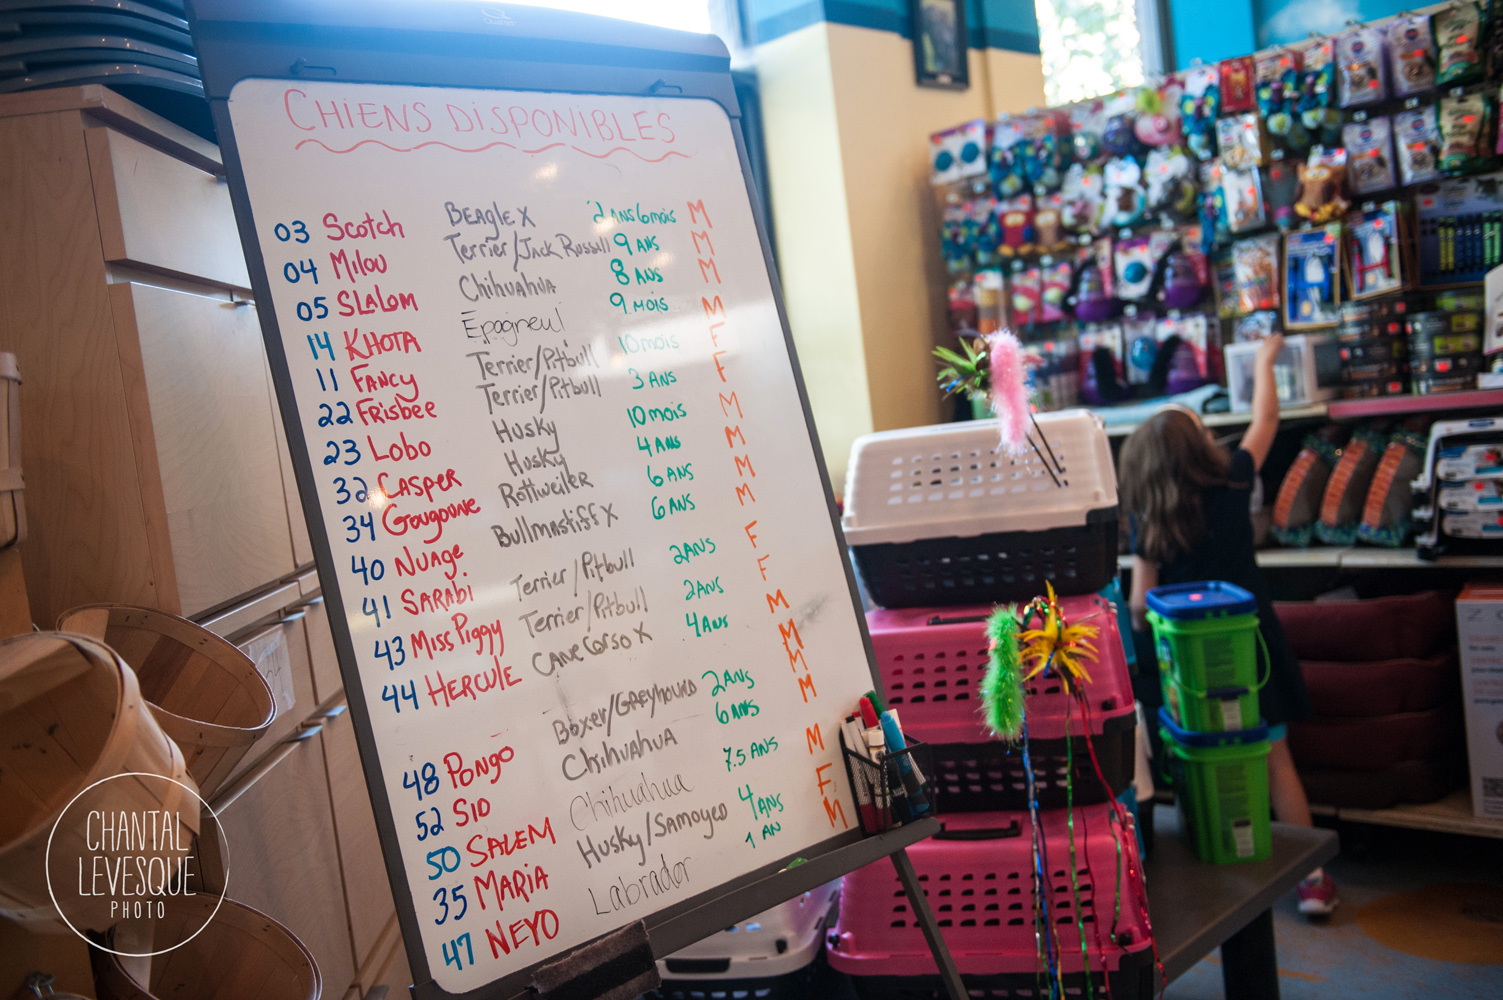 CHIENS DISPONIBLES
03 Scotch BEAGLE X 2 ANS 6 mois M
04 Milou Terrier/Jack Russell 9 ANS M
05 SLALOM Chihuahua 8 ANS M
14 KHOTA Epagneul 9 MOIS M
11 FANCY Terrier/Pitbull 10 mois F
22 FRisbee Terrier/Pitbull 3 ANS F
23 LOBO Husky 10 mois M
32 CASPER Husky 4 ANS M
34 Gougoune Rottweiler 6 ANS M
40 NUAGE Bullmastiff X 6 ANS M
41 SARABi Terrier/Pitbull 2 ANS F
43 Miss Piggy Terrier/Pitbull 2 ANS F
44 HERCULE CANE CORSO X 4 ANS M
48 PONGO Boxer/GREyhound 2 ANS M
52 SID CHiHUAHUA 6 ANS M
50 SALEM Chihuahua 7.5 ANS M
35 MARIA Husky/Samoyed 4 ANS F
47 NEYO Labrador 1 AN M
CHANTAL
LEVESQUE
PHOTO